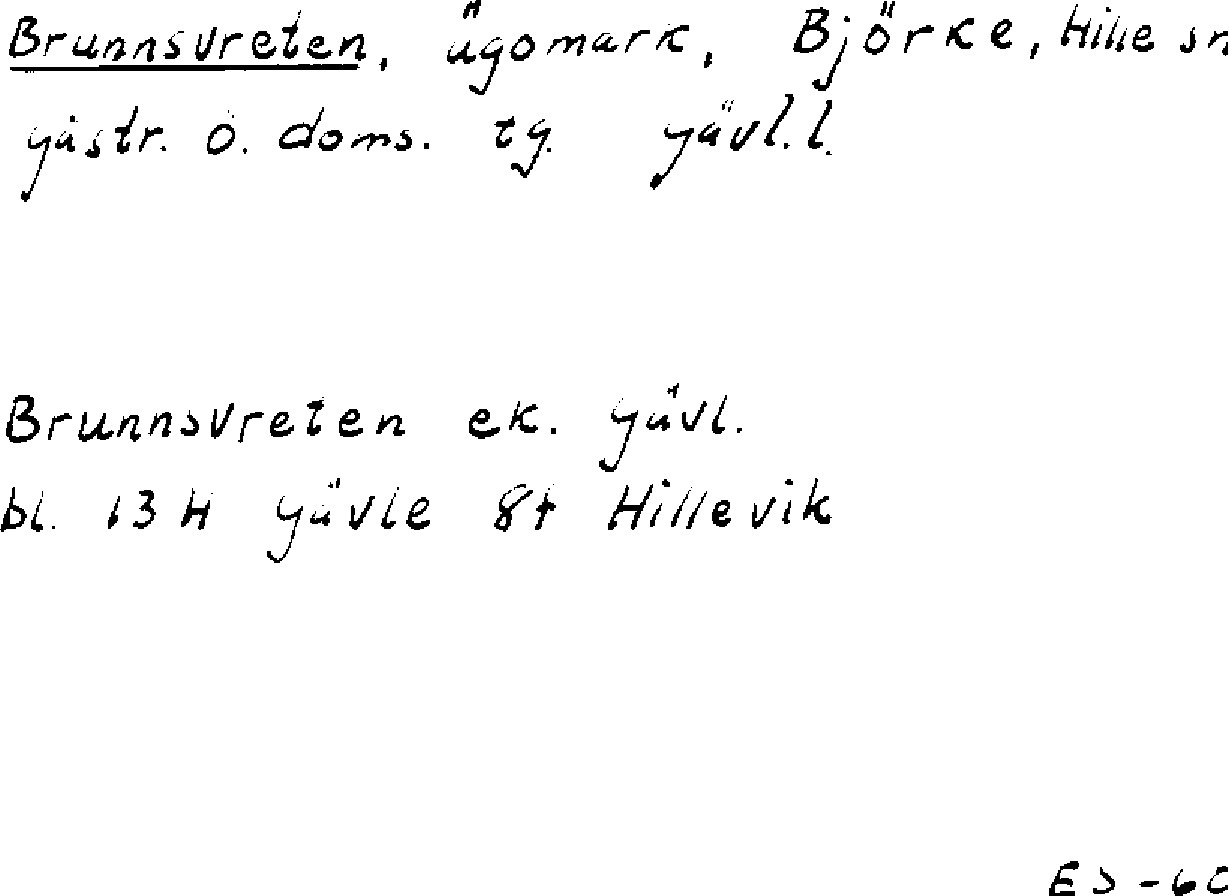 Brunnsvreten, ägomark, Björke, Hille sn
gästr. ö. doms. tg. gävl. l.
Brunnsvreten ek. gävl.
bl. 13 H gävle 8f Hillevik
ES-60